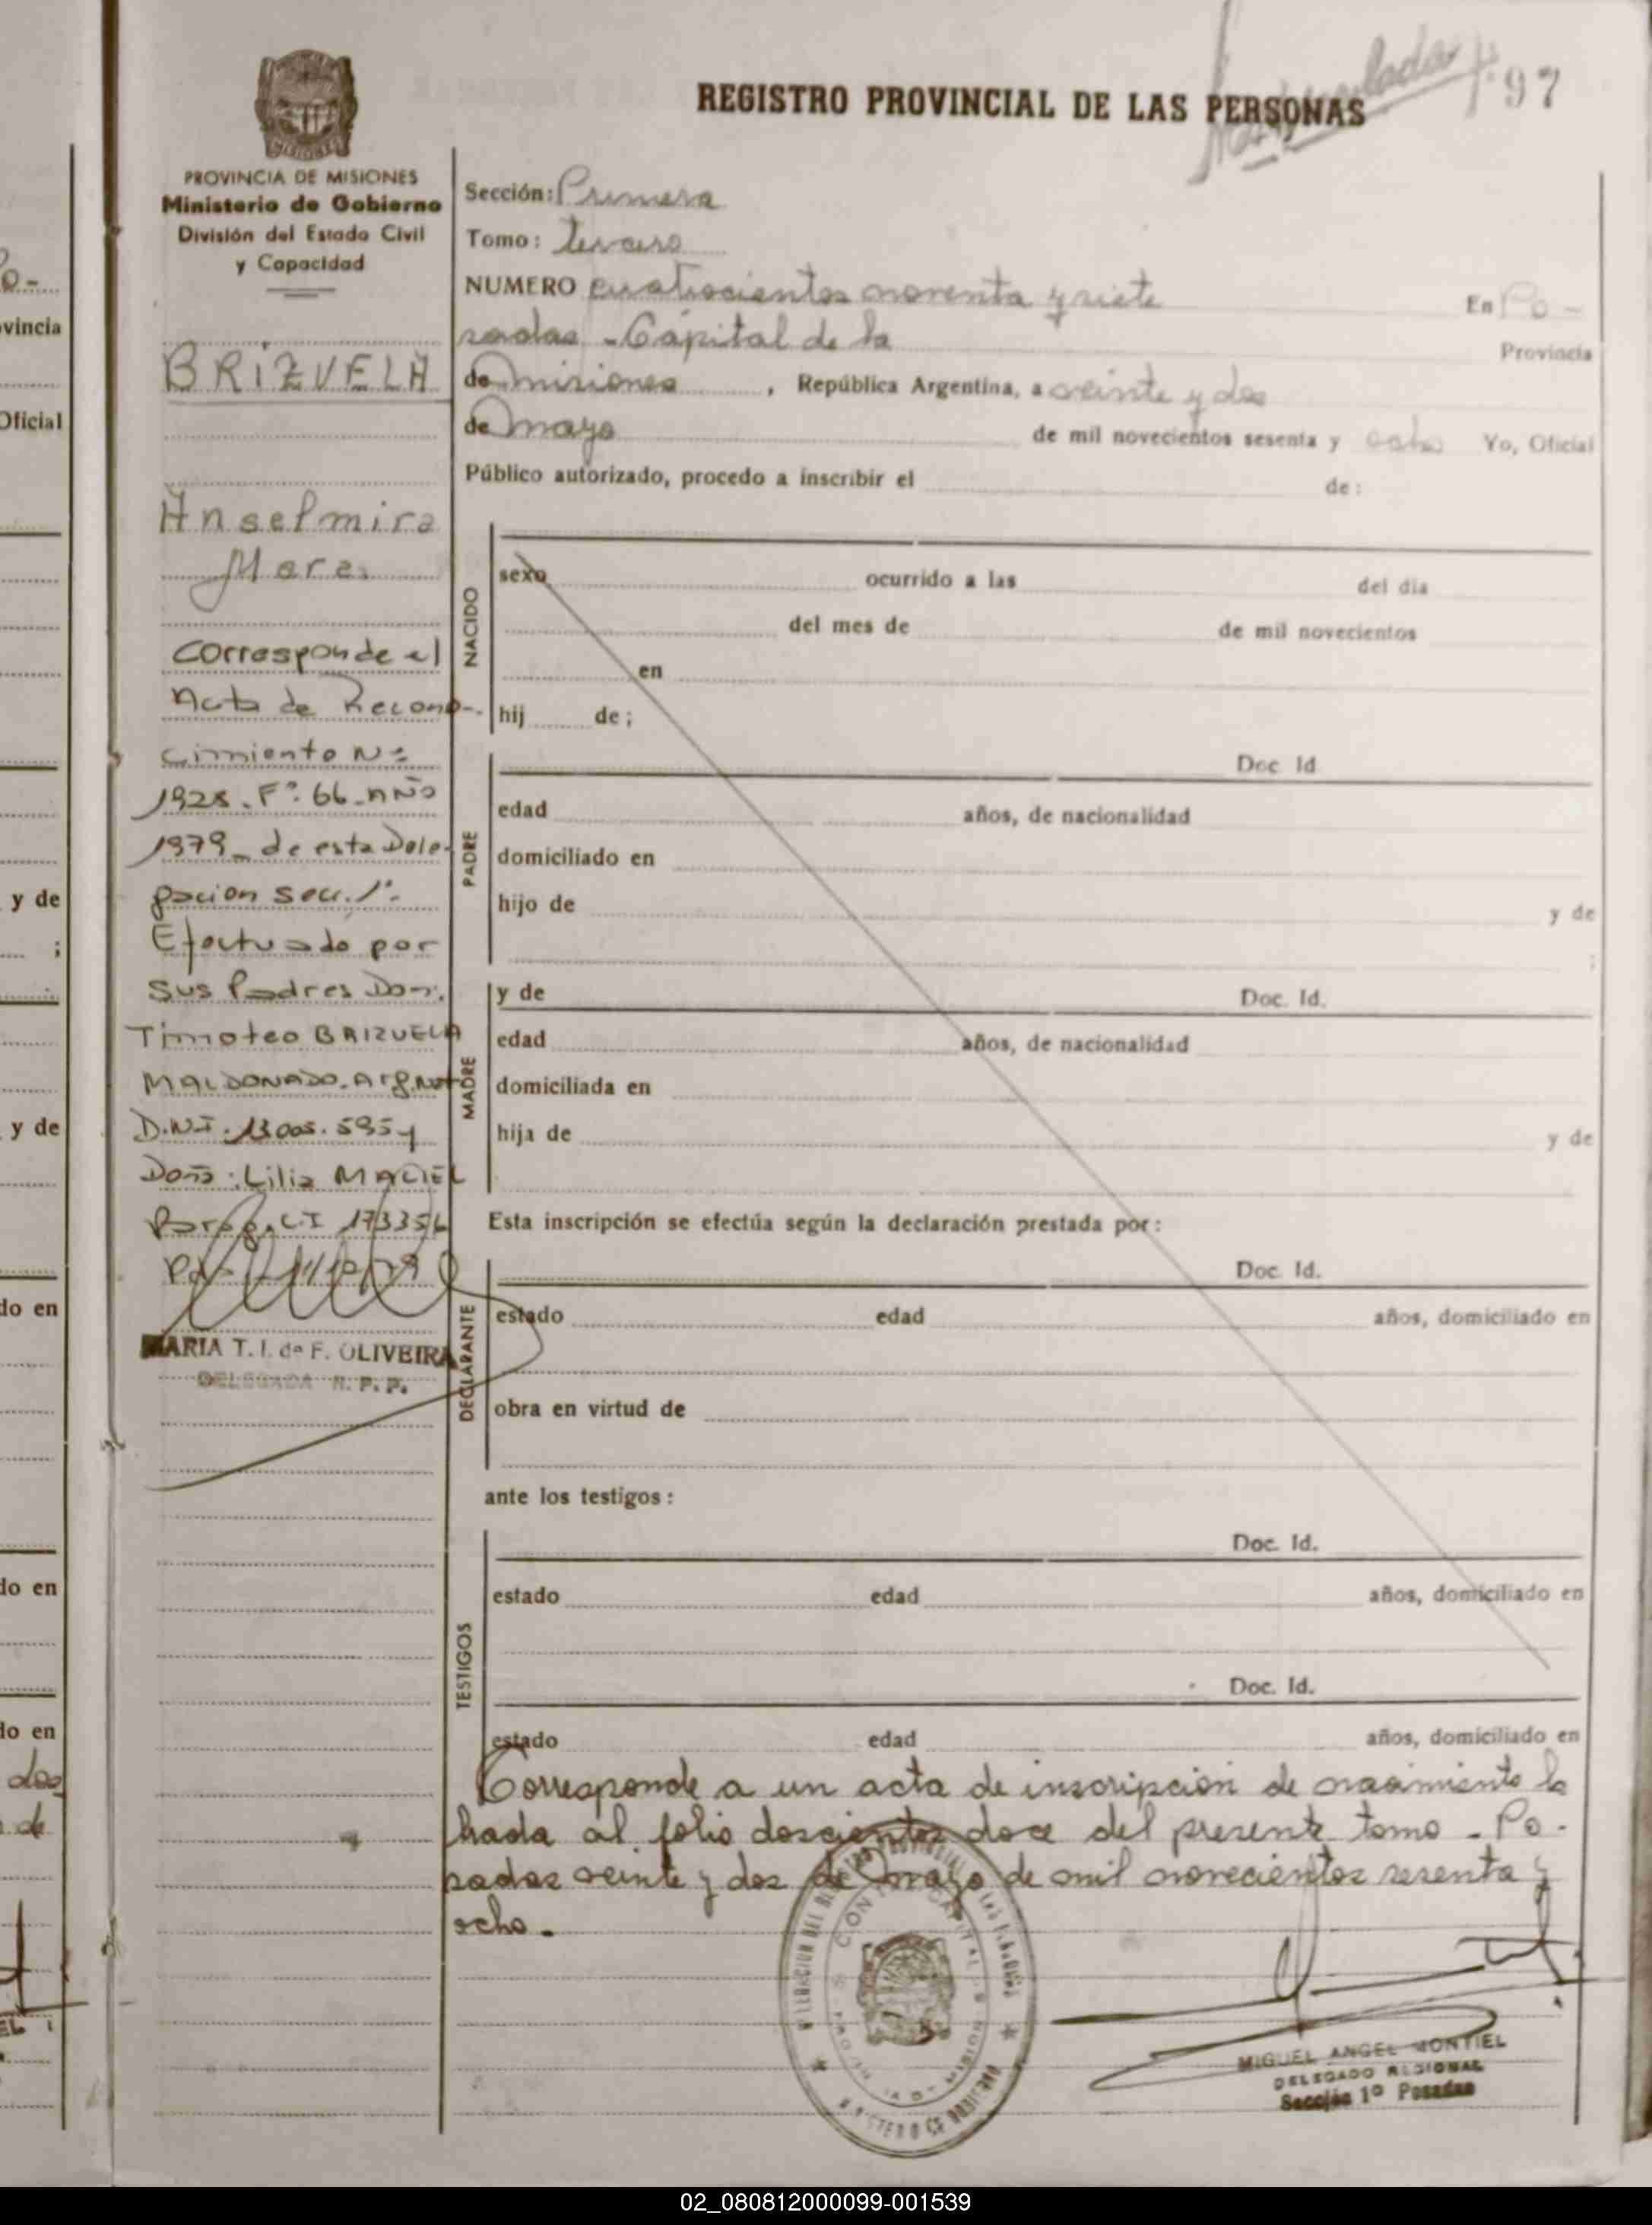 REGISTRO PROVINCIAL DE LAS PERSONAS
97
MISIONES
PROVINCIA DE MISIONES
Ministerio de Gobierno
División del Estado Civil
y Capacidad
Sección: Primera
Tomo: tercero
NUMERO cuatrocientos noventa y siete En Po-
sadas - Capital de la Provincia
de misiones, República Argentina, a veinte y dos
de mayo de mil novecientos sesenta y ocho Yo, Oficial
Público autorizado, procedo a inscribir el de:
BRIZUELA
Anselmira
corresponde el
Acta de Recono-
cimiento Nº
1928. Fº. 66. AÑO
1979 de esta Dele-
gacion Secc. 1º.
Efectuado por
Sus Padres Don.
Timoteo BRIZUELA
MALDONADO. Arg. Nat
D.N.I. 13005.595 y
Doña: Lilia MACIEL
Parag. C.I 173356
MARIA T. I. de F. OLIVEIRA
DELEGADA R. P. P.
NACIDO
sexo ocurrido a las del día
del mes de de mil novecientos
en
hij de;
PADRE
Doc. Id
edad años, de nacionalidad
domiciliado en
hijo de y de
;
MADRE
y de Doc. Id.
edad años, de nacionalidad
domiciliada en
hija de y de
Esta inscripción se efectúa según la declaración prestada por:
DECLARANTE
Doc. Id.
estado edad años, domiciliado en
obra en virtud de
ante los testigos:
TESTIGOS
Doc. Id.
estado edad años, domiciliado en
Doc. Id.
estado edad años, domiciliado en
Corresponde a un acta de inscripción de nacimiento la
brada al folio doscientos doce del presente tomo - Po-
sadas veinte y dos de mayo de mil novecientos sesenta y
ocho.
MIGUEL ANGEL MONTIEL
DELEGADO REGIONAL
Sección 1º Posadas
vincia
Oficial
y de
;
y de
do en
do en
do en
dos
de
02_080812000099-001539